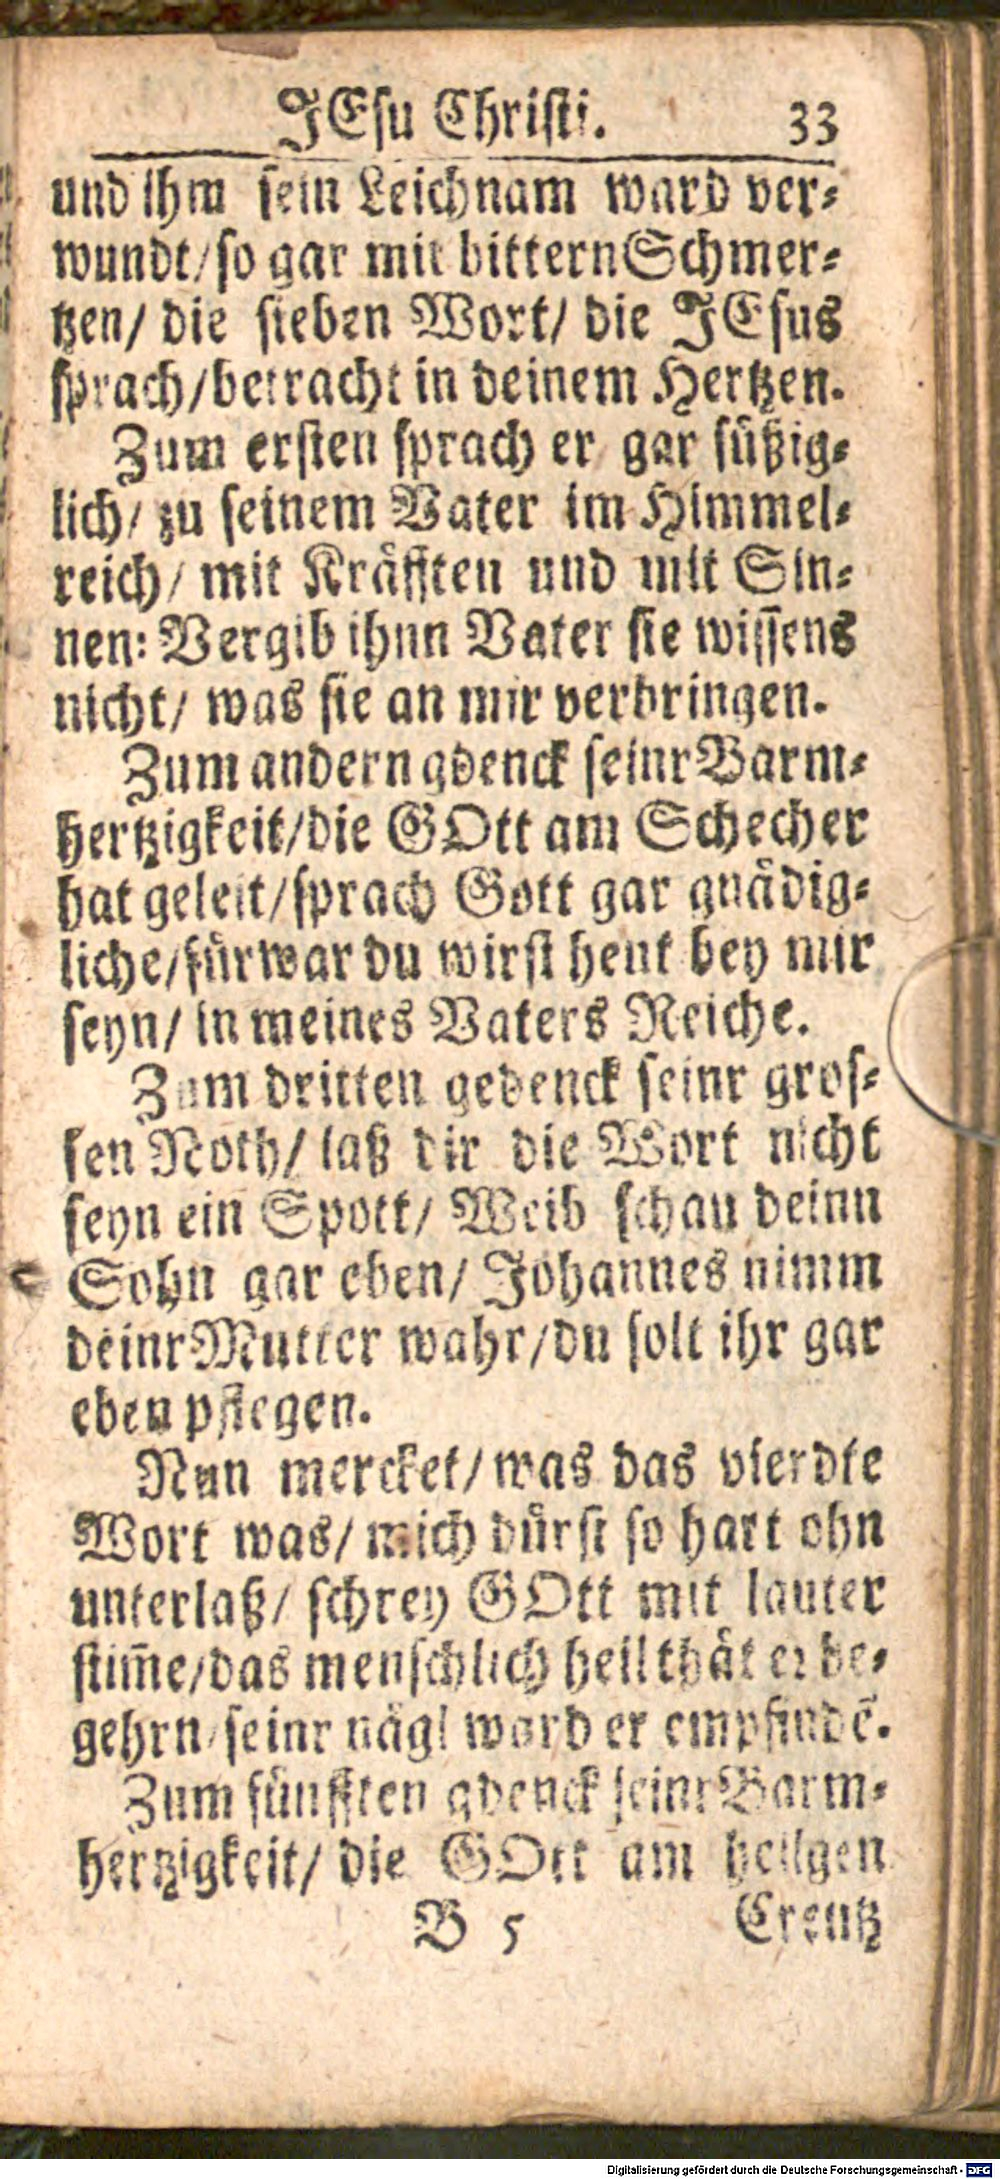 JEsu Christi. 33
und ihm sein Leichnam ward ver-
wundt/so gar mit bittern Schmer-
tzen/ die sieben Wort/ die JEsus
sprach/betracht in deinem Hertzen.
Zum ersten sprach er gar süßig-
lich/ zu seinem Vater im Himmel-
reich/ mit Kräfften und mit Sin-
nen: Vergib ihnn Vater sie wissens
nicht/ was sie an mir verbringen.
Zum andern gdenck seinr Barm-
hertzigkeit/die GOtt am Schecher
hat geleit/sprach Gott gar gnädig-
liche/fürwar du wirst heut bey mir
seyn/ in meines Vaters Reiche.
Zum dritten gedenck seinr gros-
sen Noth/ laß dir die Wort nicht
seyn ein Spott/ Weib schau deinn
Sohn gar eben/ Johannes nimm
deinr Mutter wahr/du solt ihr gar
eben pflegen.
Nun mercket/was das vierdte
Wort was/ mich dürst so hart ohn
unterlaß/ schrey GOtt mit lauter
stim̄e/das menschlich heil thät er be-
gehrn/seinr nägl ward er empfindē.
Zum fünfften gdenck seinr Barm-
hertzigkeit/ die GOtt am heilgen
B 5 Creutz
Digitalisierung gefördert durch die Deutsche Forschungsgemeinschaft - DFG